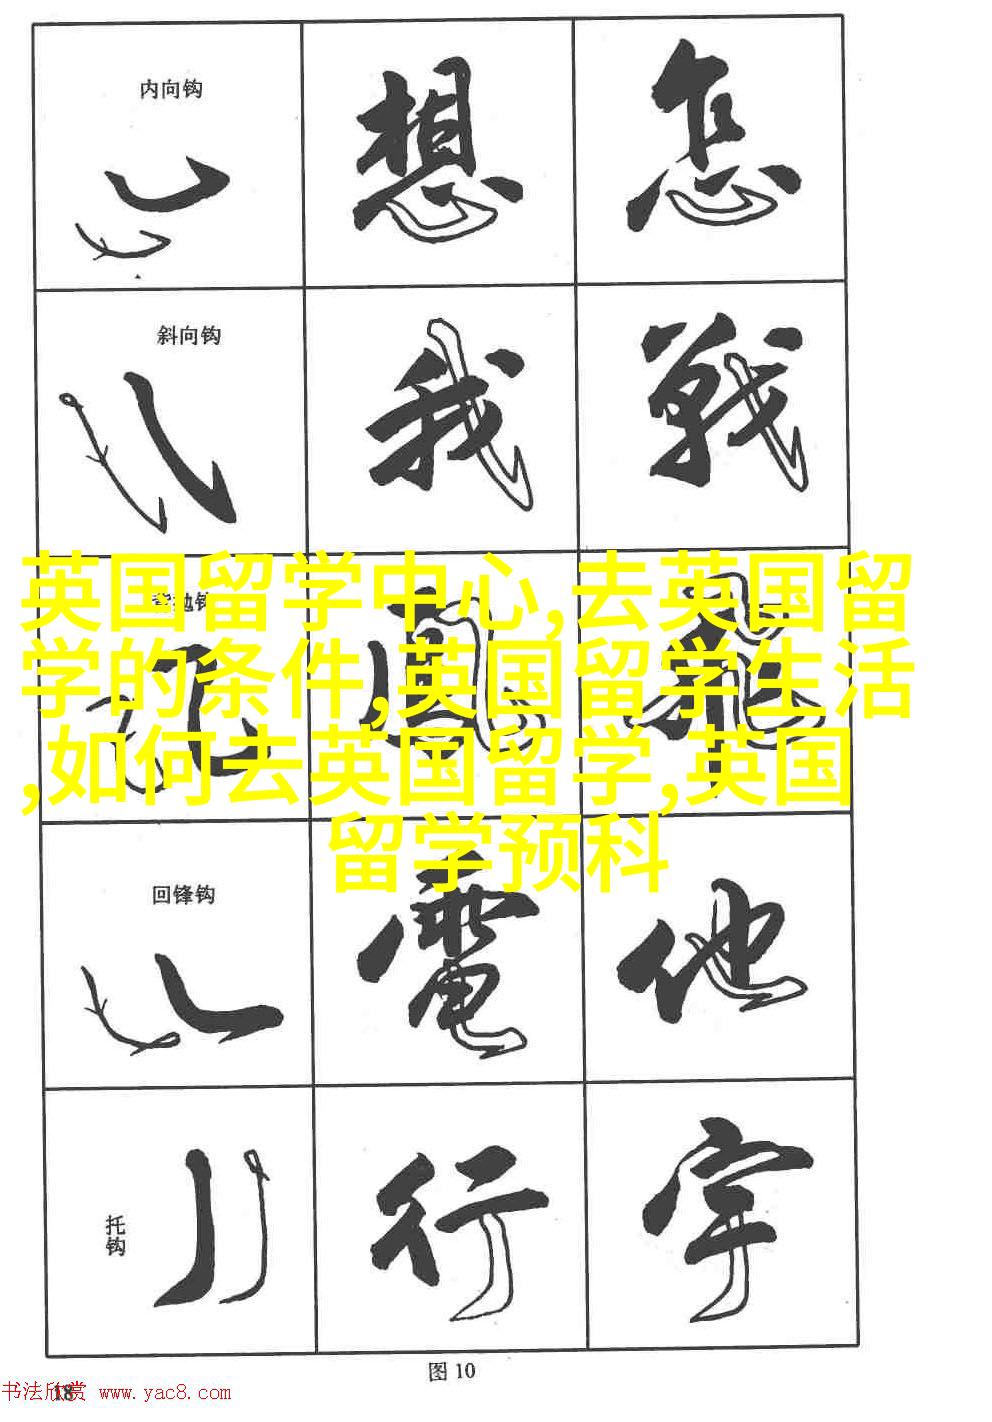 内向钩
想 怎
斜向钩
我 戰
英国留学中心,去英国留
学的条件,英国留学生活
,如何去英国留学,英国
留学预科
風 飛
回锋钩
電 他
托钩
行 宇
图 10
18
书法欣赏 www.yac8.com